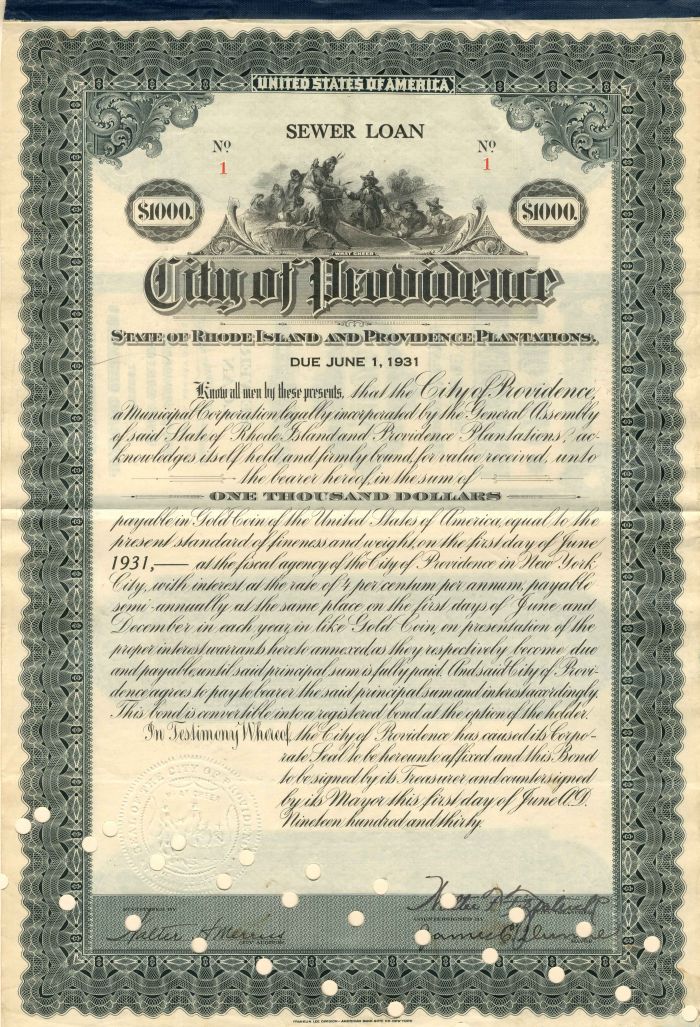 UNITED STATES OF AMERICA
SEWER LOAN
No 1
No 1
$1000.
$1000.
WHAT CHEER
City of Providence
STATE OF RHODE ISLAND AND PROVIDENCE PLANTATIONS.
DUE JUNE 1, 1931
Know all men by these presents, that the City of Providence,
a Municipal Corporation legally incorporated by the General Assembly
of said State of Rhode Island and Providence Plantations, ac-
knowledges itself held and firmly bound, for value received, unto
the bearer hereof, in the sum of
ONE THOUSAND DOLLARS
payable in Gold Coin of the United States of America, equal to the
present standard of fineness and weight, on the first day of June
1931,— at the fiscal agency of the City of Providence in New York
City, with interest at the rate of 4 per centum per annum, payable
semi-annually at the same place on the first days of June and
December in each year, in like Gold Coin, on presentation of the
proper interest warrants hereto annexed, as they respectively become due
and payable, until said principal sum is fully paid. And said City of Provi-
dence agrees to pay to bearer the said principal sum and interest accordingly.
This bond is convertible into a registered bond at the option of the holder.
In Testimony Whereof, the City of Providence has caused its Corpo-
rate Seal to be hereunto affixed and this Bond
to be signed by its Treasurer and countersigned
by its Mayor this first day of June A.D.
Nineteen hundred and thirty.
SEAL OF THE CITY OF PROVIDENCE
Walter F. Fitzpatrick
COUNTERSIGNED BY
Walter
CITY AUDITOR
James E. Dunne
FRANKLIN LEE DIVISION - AMERICAN BANK NOTE CO. NEW YORK